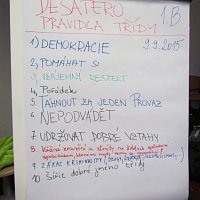 DESATERO
PRAVIDLA TŘÍDY 1B
9.9.2015
1) DEMOKRACIE
2) POMÁHAT SI
3) VZÁJEMNÝ RESPEKT
4) Pořádek
5) TÁHNOUT ZA JEDEN PROVAZ
6 NEPODVÁDĚT
7 UDRŽOVAT DOBRÉ VZTAHY
8 Vážná zranění a ztráty
9 ZÁKAZ KRIMINALITY
10 Šířit dobré jméno třídy